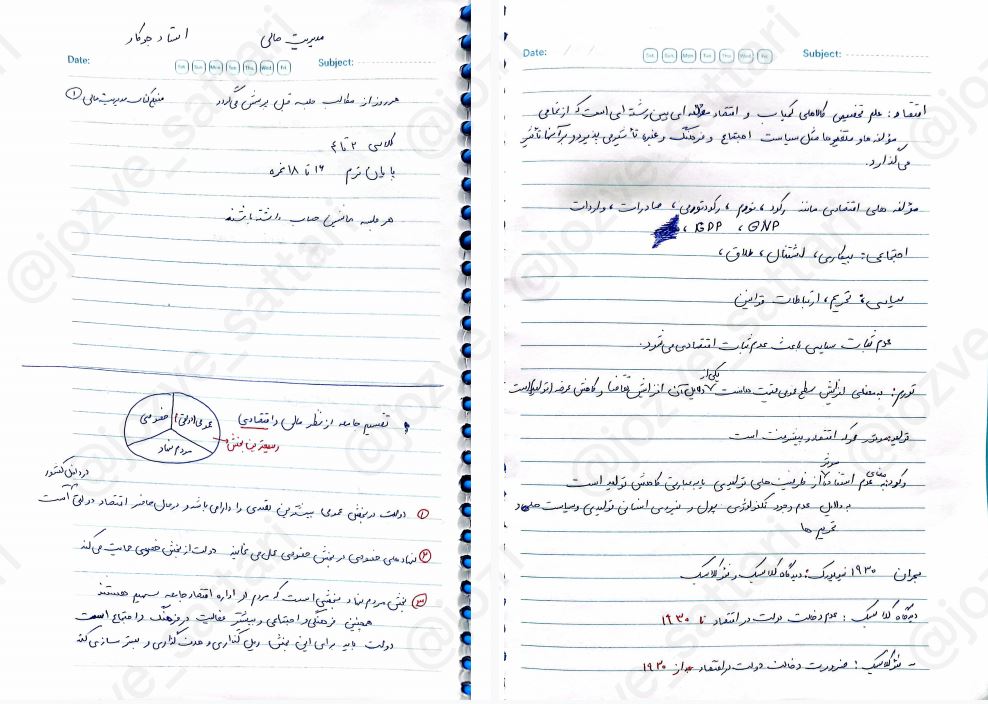 مدیریت مالی     استاد جوکار
Date:     Sat Sun Mon Tue Thu Wed Fri     Subject:
هر روز از مطالب جلسه قبل پرسش می‌گردد     منبع کتاب مدیریت مالی ①
کلاسی ۲ تا ۴
پایان ترم ۱۶ تا ۱۸ نمره
هر جلسه ماشین حساب داشته باشند
تقسیم جامعه از نظر مالی و اقتصادی
عمومی (دولتی)
خصوصی
مردم نهاد
وسیعترین بخش
در داخل کشور
① دولت در بخش عمومی بیشترین نقدی را دارا می باشد و در حال حاضر اقتصاد دولتی است
② نهادهای خصوصی در بخش خصوصی عمل می نمایند دولت از بخش خصوصی حمایت می کند
③ بخش مردم نهاد بخشی است که مردم در اداره اقتصاد جامعه سهیم هستند
همچنین فرهنگی و اجتماعی و بیشتر فعالیت در فرهنگ و اجتماع است
دولت باید برای این بخش ریل گذاری و هدف گذاری و بستر سازی کند
Date: / /     Sat Sun Mon Tue Thu Wed Fri     Subject:
اقتصاد: علم تخصیص کالاهای کمیاب و اقتصاد مقوله ای بین رشته ای است که از تمامی
مولفه ها و متغیرها مثل سیاست اجتماع و فرهنگ و غیره تاثیر می پذیرد و بر آنها تاثیر
می گذارد.
مؤلفه های اقتصادی مانند رکود، تورم، رکود تورمی، صادرات، واردات
GDP ، GNP،
اجتماعی: بیکاری، اشتغال، طلاق،
سیاسی: تحریم، ارتباطات قوانین
عدم ثبات سیاسی باعث عدم ثبات اقتصادی می شود.
یکی از
تورم: به معنای افزایش سطح عمومی قیمت هاست دلایل آن افزایش تقاضا و کاهش عرضه (تولید) است
تولید موتور محرکه اقتصاد و پیشرفت است
موثر
رکود: به معنای عدم استفاده از ظرفیت های تولیدی یا به عبارتی کاهش تولید است
به دلایل عدم وجود تکنولوژی پول و نیروی انسانی تولیدی و سیاست ها و
تحریم ها
بحران ۱۹۳۰ نیویورک: دیدگاه کلاسیک و نئوکلاسیک
دیدگاه کلاسیک: عدم دخالت دولت در اقتصاد تا ۱۹۳۰
نئوکلاسیک: ضرورت دخالت دولت در اقتصاد بعد از ۱۹۳۰
@jozve_sattari